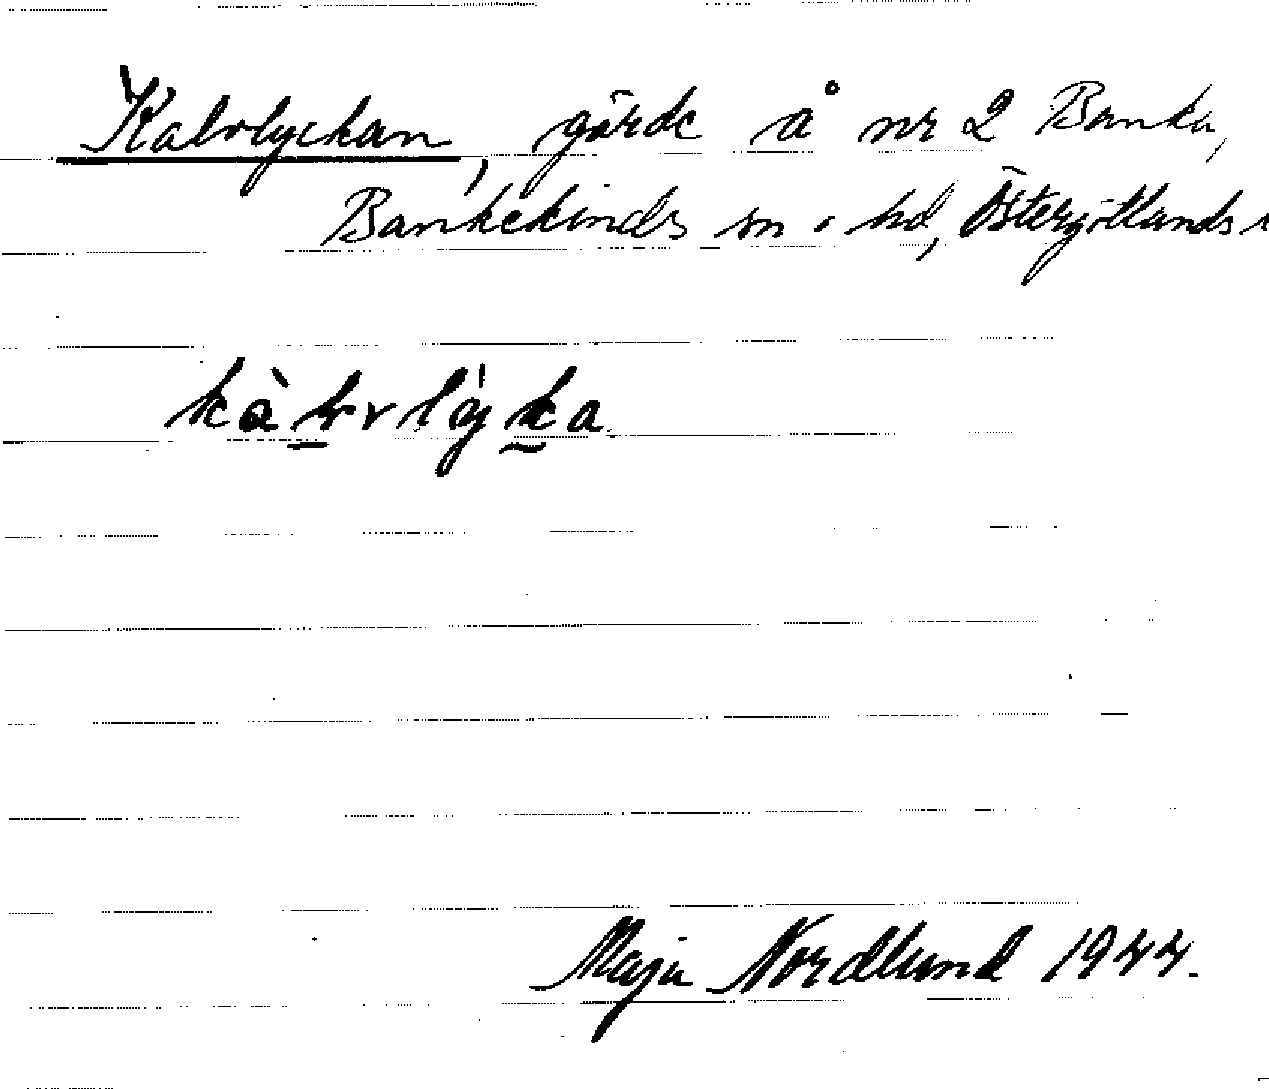 Kalvlyckan, gärde å nr 2 Banka,
Bankekinds sn o hd, Östergötlands
Maja Nordlund 1944.